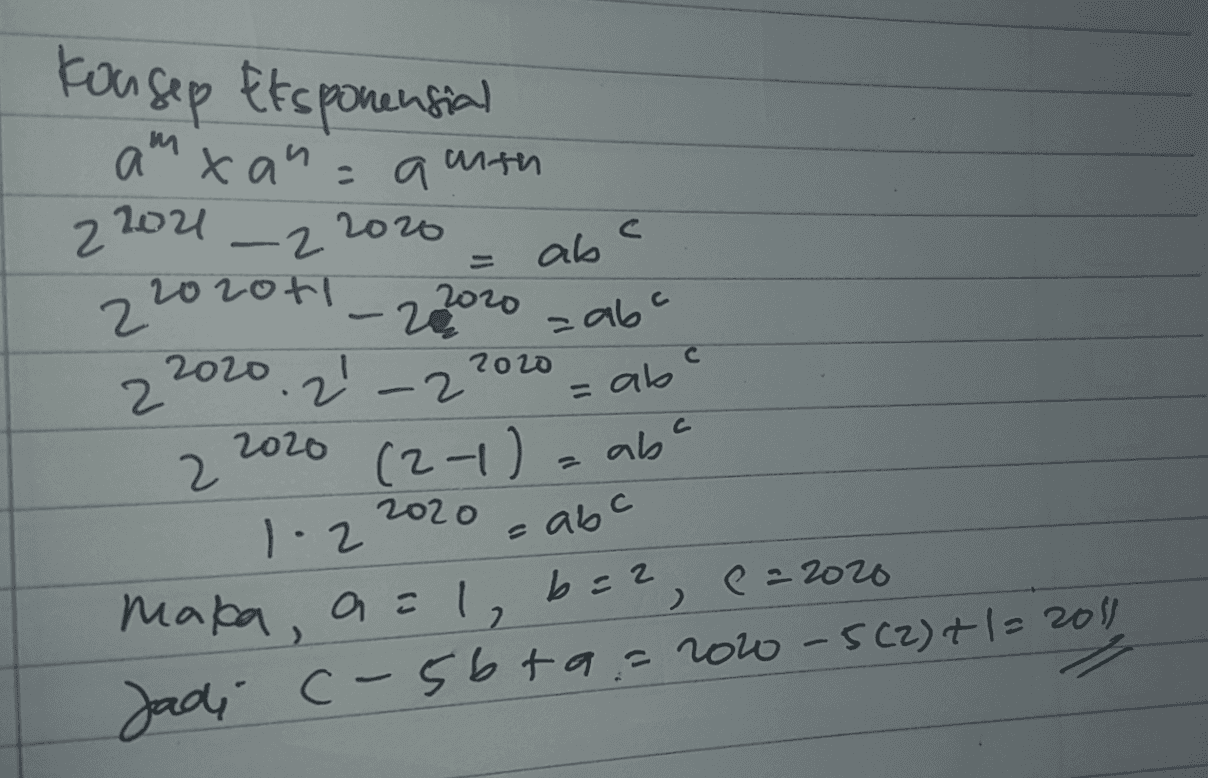 Konsep Eksponensial
a^m x a^n = a^m+n
2^2021 - 2^2020 = ab^c
2^2020+1 - 2^2020 = ab^c
2^2020 . 2^1 - 2^2020 = ab^c
2^2020 (2-1) = ab^c
1 . 2^2020 = ab^c
Maka, a = 1, b = 2, c = 2020
Jadi c - 5b + a = 2020 - 5(2) + 1 = 2011